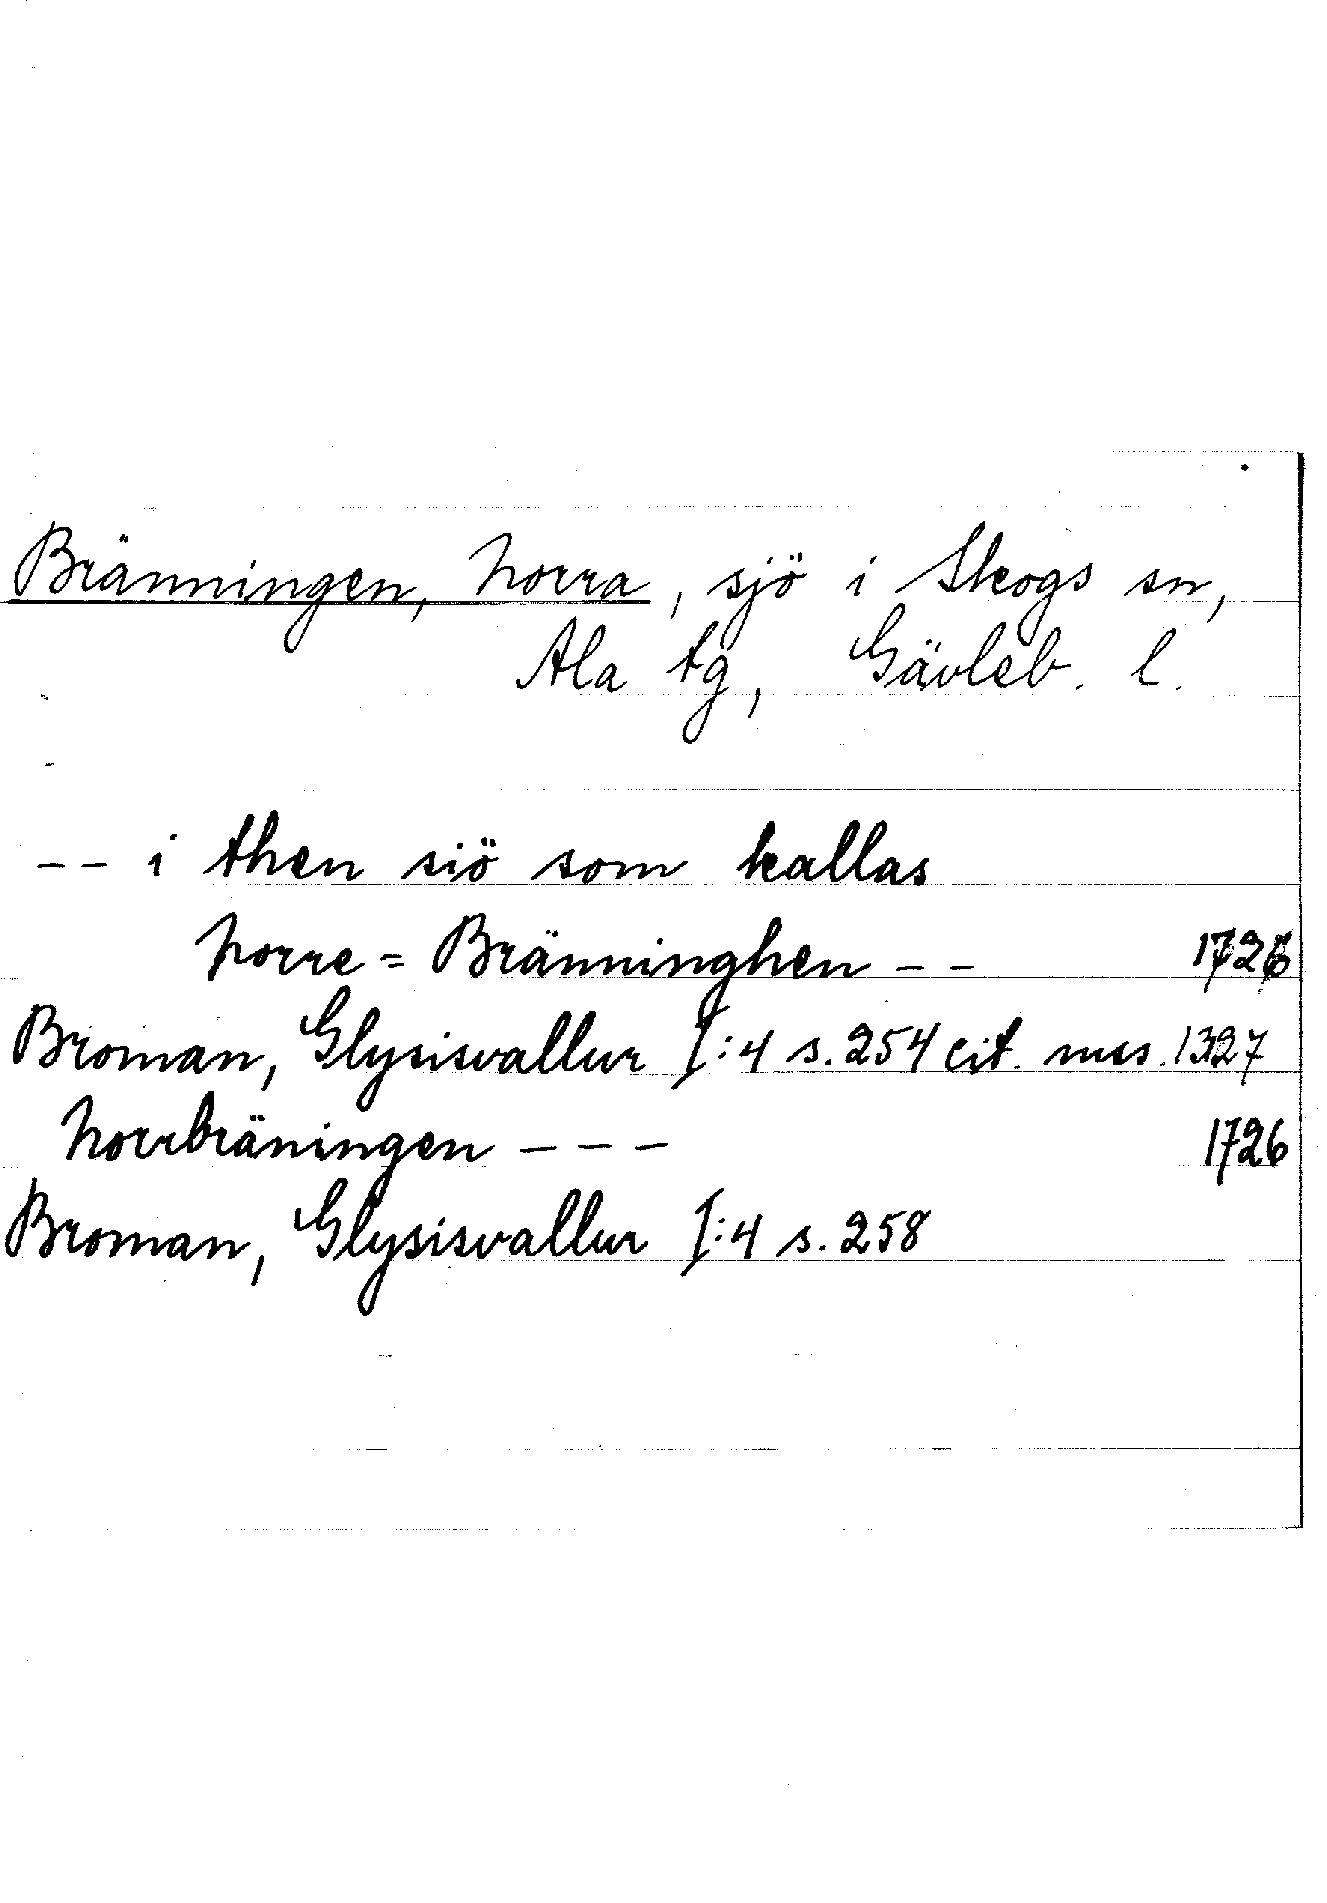 Bränningen, Norra, sjö i Skogs sn,
Ala tg, Gävleb. l.
-- i then siö som kallas
Norre = Bränninghen -- 1726
Broman, Glysisvallur I:4 s. 254 cit. mss. 1327
Norrbräningen --- 1726
Broman, Glysisvallur I:4 s. 258